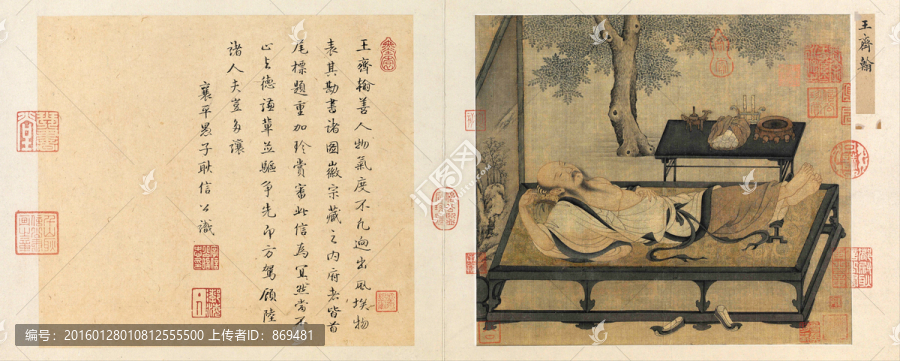 王齊翰善人物氣度不凡迥出風埃物
表其勘書諸圖徽宗藏之內府者皆首
尾標題重加珍賞審此信為真然當不
止與德謙輩並驅爭先即方駕顧陸
諸人夫豈多讓
襄平子耿信公識
王齊翰
编号:20160128010812555500 上传者ID:869481